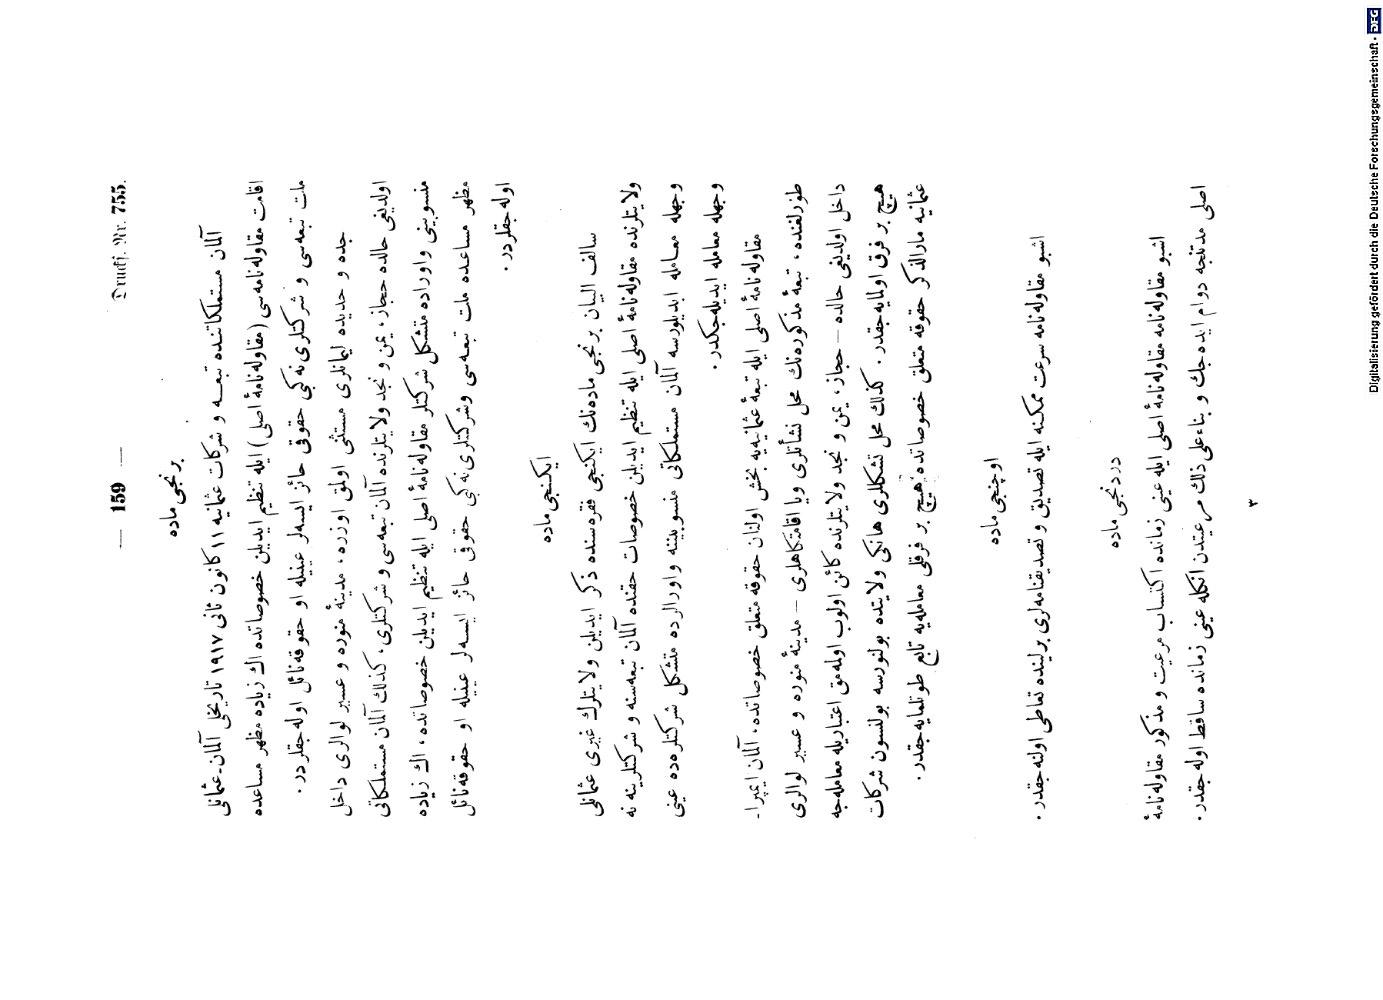 — 159 —
Drucks. Nr. 755.
برنجی ماده
آلمان مستملكاتنده تبعه و شركات عثمانیه ١١ كانون ثانی ١٩١٧ تاریخلی آلمان-عثمانلی
اقامت مقاوله‌نامه‌سی (مقاوله‌نامهٔ اصلی) ایله تنظیم ایدیلن خصوصاتده اك زیاده مظهر مساعده
ملت تبعه‌سی و شركتلری نه كبی حقوقی حائز ایسه‌لر عینیله او حقوقه نائل اوله‌جقلردر.
جده و حدیده لیمانلری مستثنی اولمق اوزره، مدینهٔ منوره و عسیر لوالری داخل
اولدیغی حالده حجاز، یمن و نجد ولایتلرنده آلمان تبعه‌سی و شركتلری، كذلك آلمان مستملكاتی
منسوبینی و اوراده متشكل شركتلر مقاوله‌نامهٔ اصلی ایله تنظیم ایدیلن خصوصاتده، اك زیاده
مظهر مساعده ملت تبعه‌سی و شركتلری نه كبی حقوقی حائز ایسه‌لر عینیله او حقوقه نائل
اوله‌جقلردر.
ایكنجی ماده
سالف البیان برنجی ماده‌نك ایكنجی فقره‌سنده ذكر ایدیلن ولایتلرك غیری عثمانلی
ولایتلرنده مقاوله‌نامهٔ اصلی ایله تنظیم ایدیلن خصوصات حقنده آلمان تبعه‌سنه و شركتلرینه نه
وجهله معامله ایدیلورسه آلمان مستملكاتی منسوبیننه و اورالرده متشكل شركتلره‌ده عینی
وجهله معامله ایدیله‌جكدر.
مقاوله‌نامهٔ اصلی ایله تبعهٔ عثمانیه‌یه بخش اولنان حقوقه متعلق خصوصاتده، آلمان ایمپرا-
طورلغنده، تبعهٔ مذكوره‌نك محل نشأتلری ویا اقامتكاهلری — مدینهٔ منوره و عسیر لوالری
داخل اولدیغی حالده — حجاز، یمن و نجد ولایتلرنده كائن اولوب اولمه‌مق اعتباریله معامله‌جه
هیچ بر فرق اولمایه‌جقدر. كذلك محل تشكلاری هانكی ولایتده بولنورسه بولنسون شركات
عثمانیه مارالذكر حقوقه متعلق خصوصاتده هیچ بر فرقلی معامله‌یه تابع طوتلمایه‌جقدر.
اوچنجی ماده
اشبو مقاوله‌نامه سرعت ممكنه ایله تصدیق و تصدیقنامه‌لری برلینده تعاطی اولنه‌جقدر.
دردنجی ماده
اشبو مقاوله‌نامه مقاوله‌نامهٔ اصلی ایله عینی زمانده اكتساب مرعیت و مذكور مقاوله‌نامهٔ
اصلی مدتنجه دوام ایده‌جك و بناءعلی ذلك مرعیتدن انكله عینی زمانده ساقط اوله‌جقدر.
٣
Digitalisierung gefördert durch die Deutsche Forschungsgemeinschaft - DFG